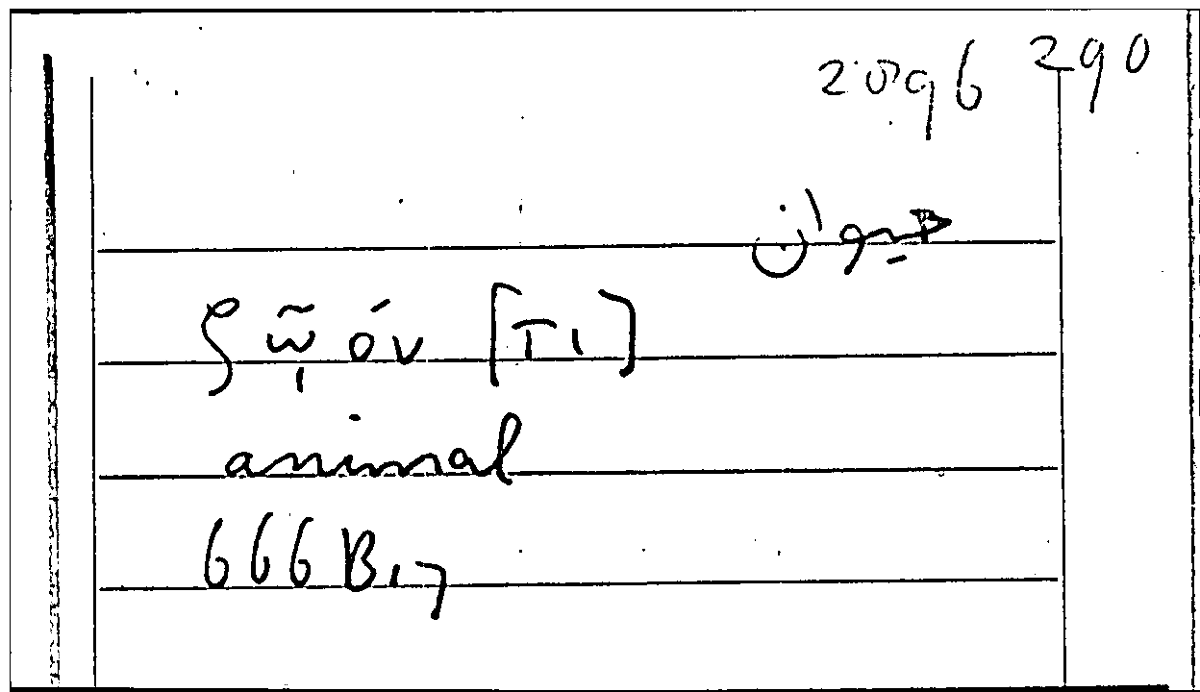 2096 290
حيوان
ζῷόν [τι]
animal
666B17